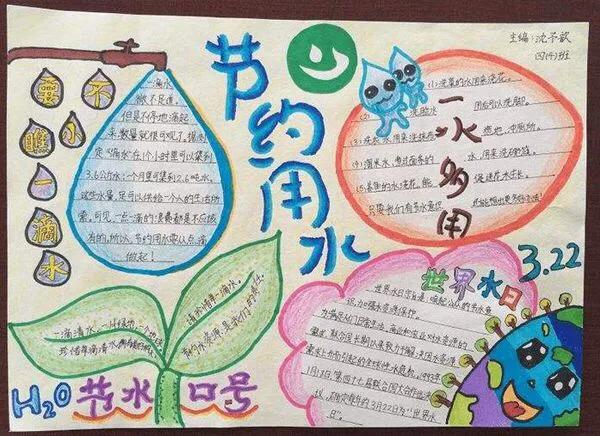 主编:沈予歆
四(4)班
节约用水
不要
小瞧
一
滴
水
一滴水
微不足道。
但是不停地滴起
来,数量就很可观了。据测
定"滴水"在1个小时里可以集到
3.6公斤水;1个月里可集到2.6吨水。
这些水量,足可以供给一个人的生活所
需。可见,一点一滴的浪费都是不应该
有的。所以,节约用水要从点滴
做起!
一水多用
(1)洗菜的水用来浇花。
(2)洗脸水用后可以洗脚。
(3)洗衣水用来洗拖把 拖地,冲厕所。
(4)淘米水,煮过面条的水,用来洗碗筷。
(5)养鱼的水浇花,能促进花木生长。
只要我们有节水意识
一滴清水,一片绿地,一个地球
珍惜每滴清水
请珍惜每一滴水。
H2O 节水口号
3.22
世界水日
世界水日宗旨是唤起公众的节水意
识,加强水资源保护。
为满足人们日常生活、商业和农业对水资源的
需求,联合国长期以来致力于解决因水资源
需求上升而引起的全球性水危机。1993年
1月18日,第四十七届联合国大会作出决
议,确定每年的3月22日为"世界水
日"。